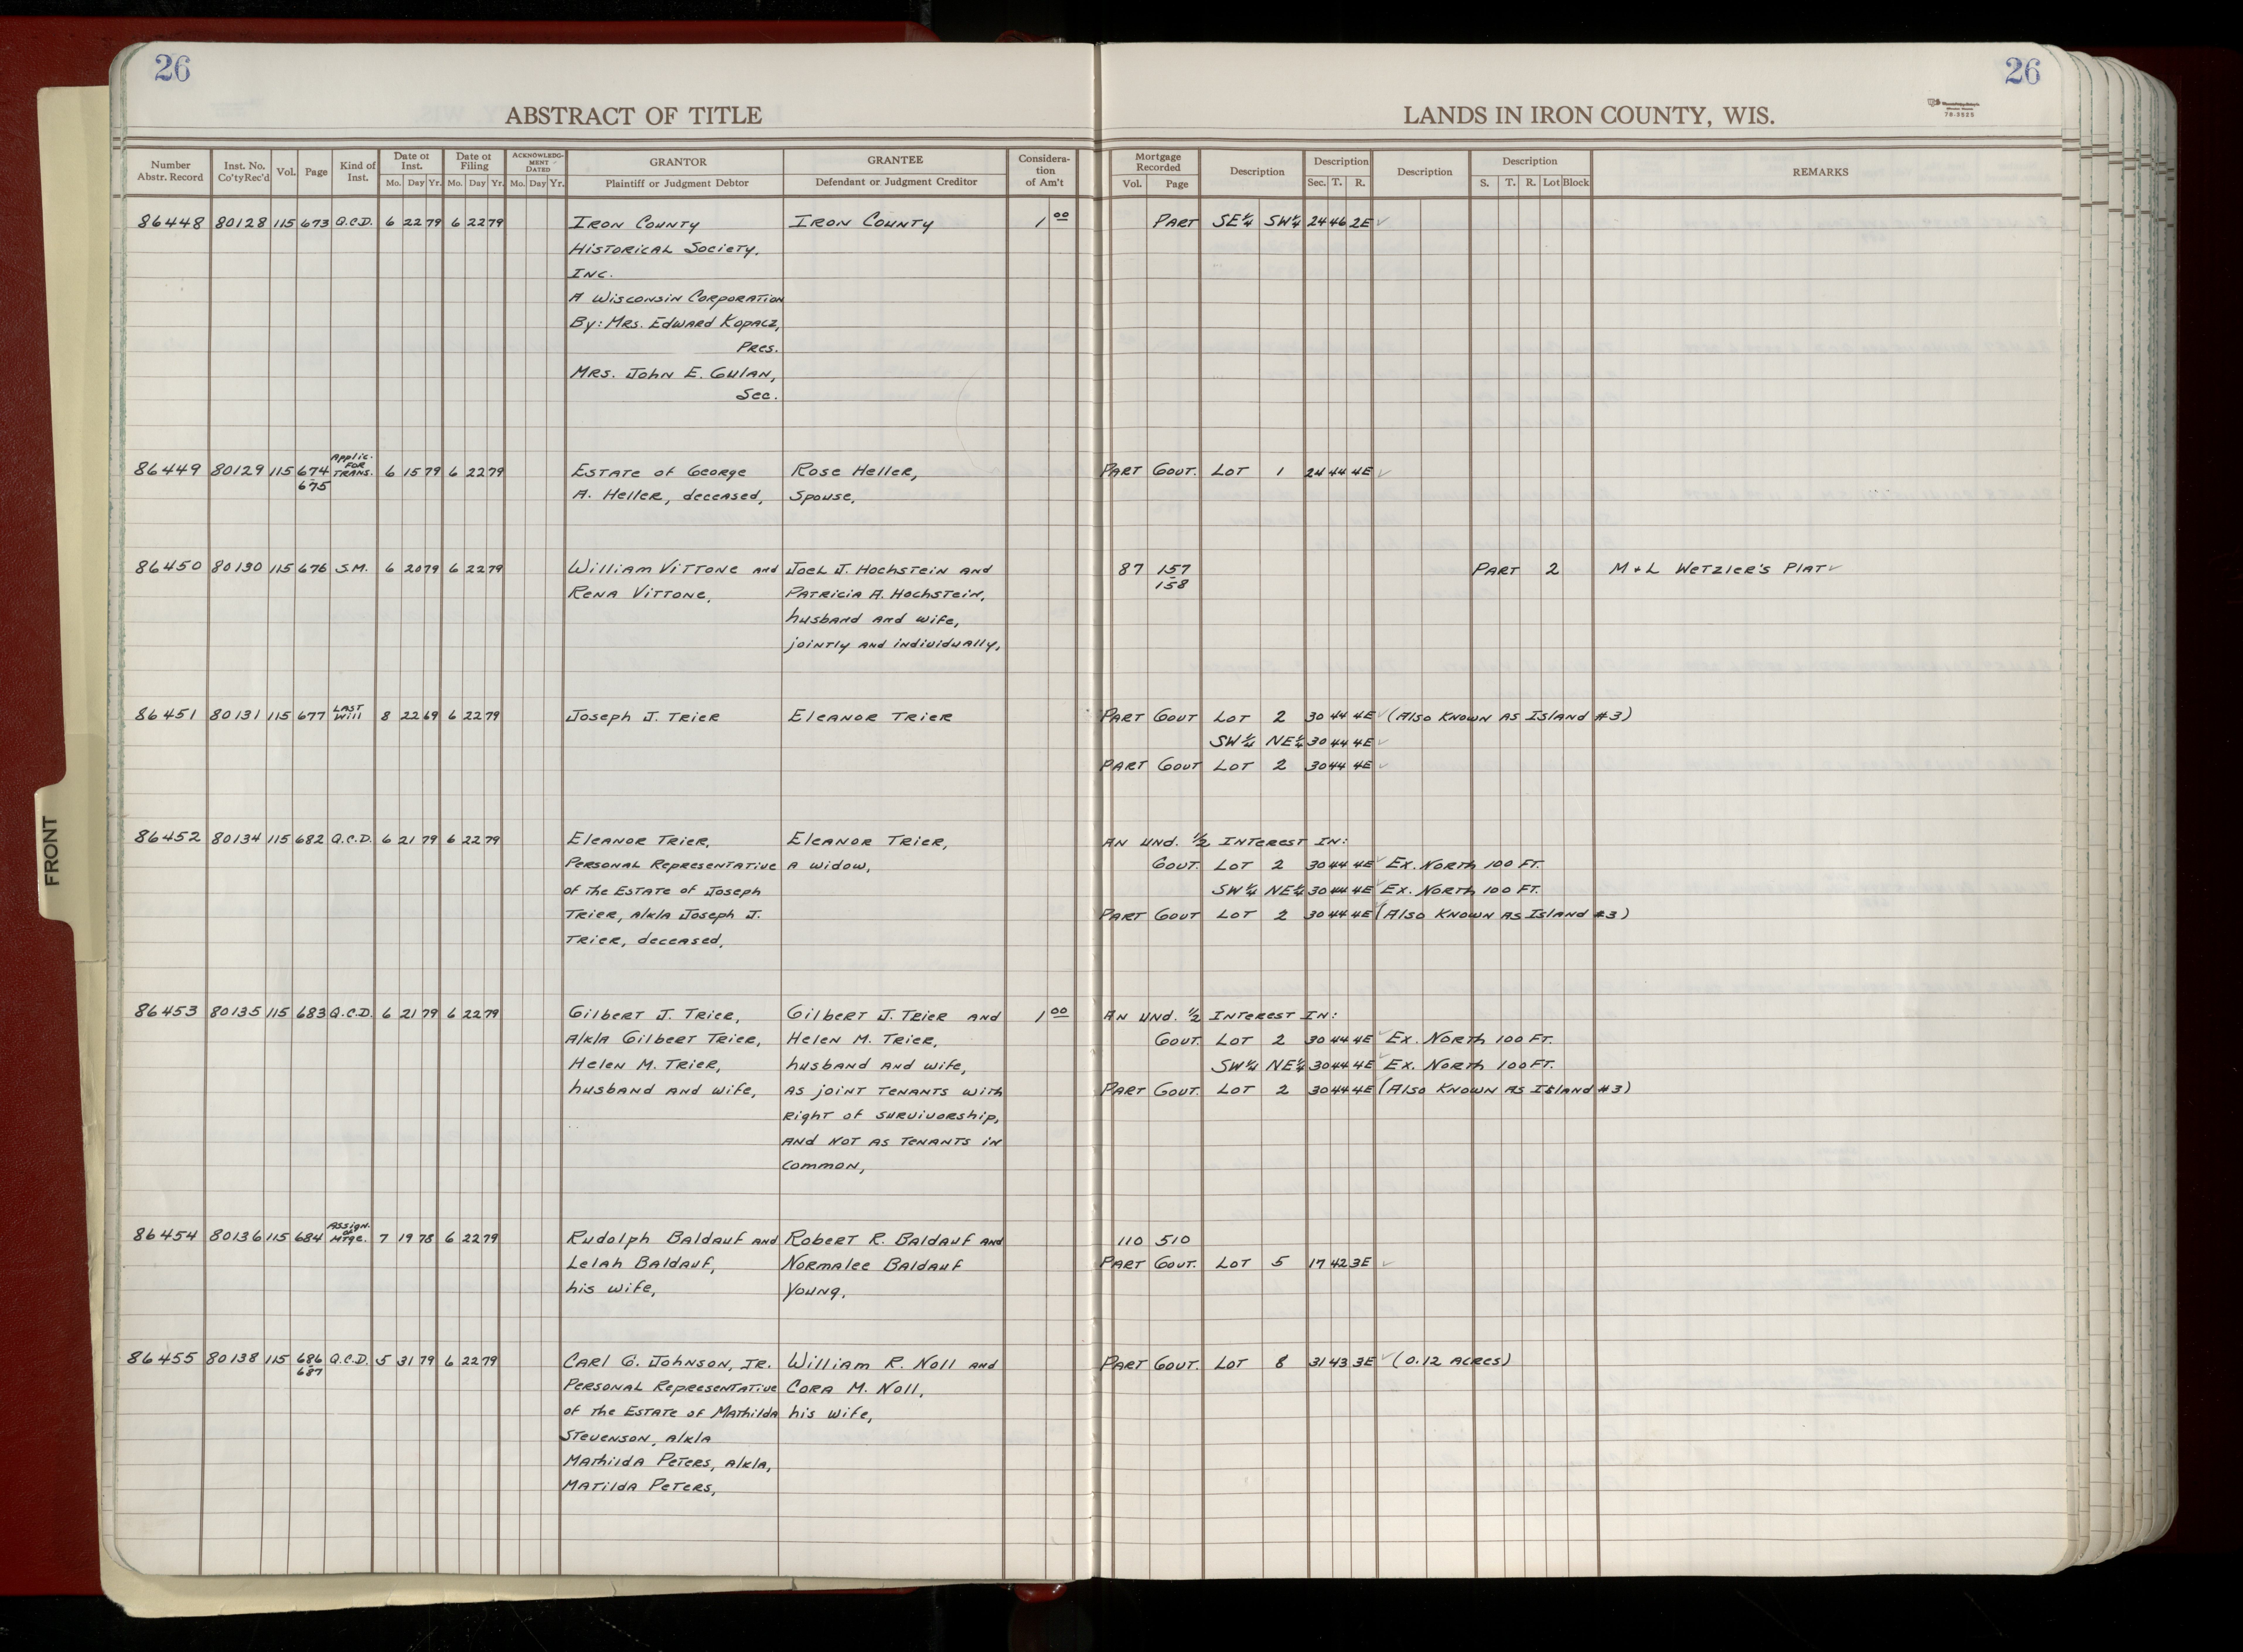 26
26
ABSTRACT OF TITLE
LANDS IN IRON COUNTY, WIS.
79-3525
FRONT
Number Abstr. Record | Inst. No. Co'ty Rec'd | Vol. | Page | Kind of Inst. | Date of Inst. Mo. Day Yr. | Date of Filing Mo. Day Yr. | ACKNOWLEDGMENT DATED Mo. Day Yr. | GRANTOR Plaintiff or Judgment Debtor | GRANTEE Defendant or Judgment Creditor | Consideration of Am't | Mortgage Recorded Vol. Page | Description | Description Sec. T. R. | Description | Description S. T. R. Lot Block | REMARKS
86448 80128 115 673 Q.C.D. 6 22 79 6 22 79 Iron County Iron County 1 00 Part SE¼ SW¼ 24 46 2E ✓
Historical Society,
Inc.
A Wisconsin Corporation
By: Mrs. Edward Kopacz,
Pres.
Mrs. John E. Gulan,
Sec.
86449 80129 115 674-675 Applic. For Trans. 6 15 79 6 22 79 Estate of George Rose Heller, Part Gout. Lot 1 24 44 4E ✓
A. Heller, deceased, Spouse,
86450 80130 115 676 S.M. 6 20 79 6 22 79 William Vittone and Joel J. Hochstein and 87 157-158 Part 2 M + L Wetzler's Plat ✓
Rena Vittone, Patricia A. Hochstein,
husband and wife,
jointly and individually,
86451 80131 115 677 Last Will 8 22 69 6 22 79 Joseph J. Trier Eleanor Trier Part Gout Lot 2 30 44 4E ✓ (Also Known as Island #3)
SW¼ NE¼ 30 44 4E ✓
Part Gout Lot 2 30 44 4E ✓
86452 80134 115 682 Q.C.D. 6 21 79 6 22 79 Eleanor Trier, Eleanor Trier, An und. ½ Interest In:
Personal Representative a widow, Gout. Lot 2 30 44 4E ✓ Ex. North 100 Ft.
of the Estate of Joseph SW¼ NE¼ 30 44 4E ✓ Ex. North 100 Ft.
Trier, a/k/a Joseph J. Part Gout Lot 2 30 44 4E ✓ (Also Known as Island #3)
Trier, deceased,
86453 80135 115 683 Q.C.D. 6 21 79 6 22 79 Gilbert J. Trier, Gilbert J. Trier and 1 00 An und. ½ Interest In:
A/k/a Gilbert Trier, Helen M. Trier, Gout. Lot 2 30 44 4E ✓ Ex. North 100 Ft.
Helen M. Trier, husband and wife, SW¼ NE¼ 30 44 4E ✓ Ex. North 100 Ft.
husband and wife, as joint tenants with Part Gout. Lot 2 30 44 4E (Also Known as Island #3)
Right of survivorship,
and not as tenants in
common,
86454 80136 115 684 Assign. of Mtge. 7 19 78 6 22 79 Rudolph Baldauf and Robert R. Baldauf and 110 510
Lelah Baldauf, Normalee Baldauf Part Gout. Lot 5 17 42 3E ✓
his wife, Young,
86455 80138 115 686-687 Q.C.D. 5 31 79 6 22 79 Carl G. Johnson, Jr. William R. Noll and Part Gout. Lot 8 31 43 3E ✓ (0.12 acres)
Personal Representative Cora M. Noll,
of the Estate of Mathilda his wife,
Stevenson, a/k/a
Mathilda Peters, a/k/a,
Matilda Peters,